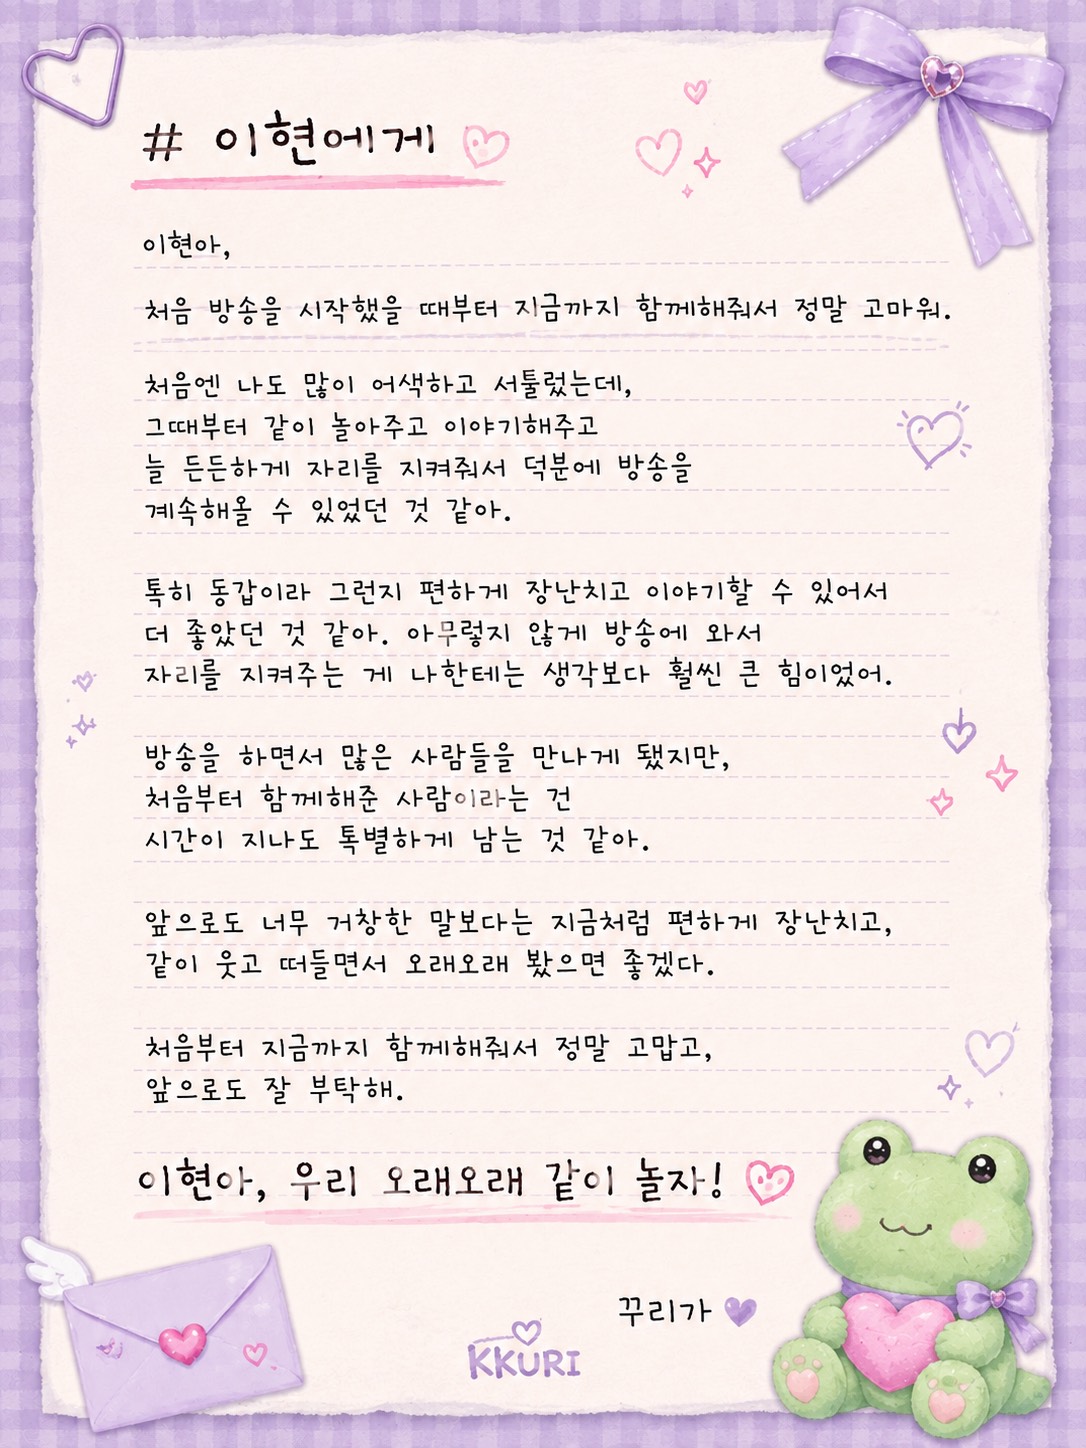 # 이현에게
이현아,
처음 방송을 시작했을 때부터 지금까지 함께해줘서 정말 고마워.
처음엔 나도 많이 어색하고 서툴렀는데,
그때부터 같이 놀아주고 이야기해주고
늘 든든하게 자리를 지켜줘서 덕분에 방송을
계속해올 수 있었던 것 같아.
특히 동갑이라 그런지 편하게 장난치고 이야기할 수 있어서
더 좋았던 것 같아. 아무렇지 않게 방송에 와서
자리를 지켜주는 게 나한테는 생각보다 훨씬 큰 힘이었어.
방송을 하면서 많은 사람들을 만나게 됐지만,
처음부터 함께해준 사람이라는 건
시간이 지나도 특별하게 남는 것 같아.
앞으로도 너무 거창한 말보다는 지금처럼 편하게 장난치고,
같이 웃고 떠들면서 오래오래 봤으면 좋겠다.
처음부터 지금까지 함께해줘서 정말 고맙고,
앞으로도 잘 부탁해.
이현아, 우리 오래오래 같이 놀자!
꾸리가
KKURI